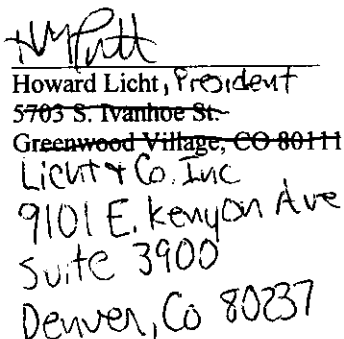 Howard Licht, President
5703 S. Ivanhoe St.
Greenwood Village, CO 80111
Licht & Co. Inc
9101 E. Kenyon Ave
Suite 3900
Denver, Co 80237